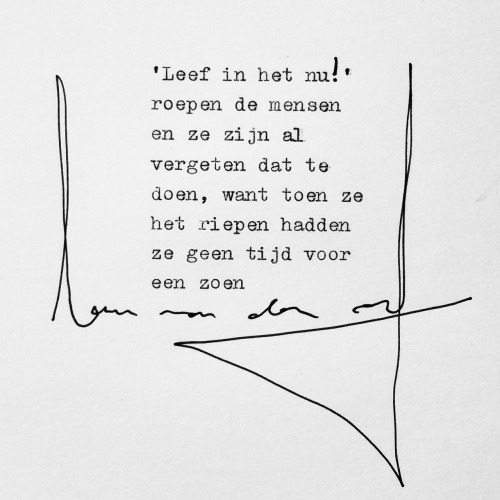 'Leef in het nu!'
roepen de mensen
en ze zijn al
vergeten dat te
doen, want toen ze
het riepen hadden
ze geen tijd voor
een zoen